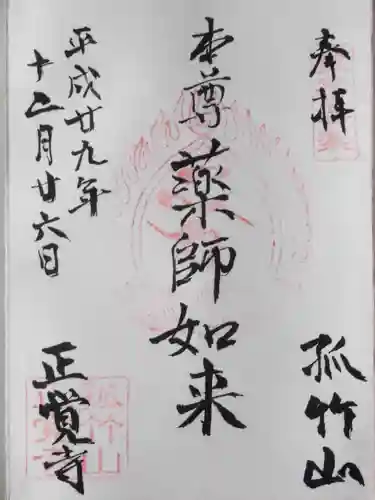 奉拝
孤竹山
本尊 薬師如来
平成廿九年
十二月廿六日
正覚寺